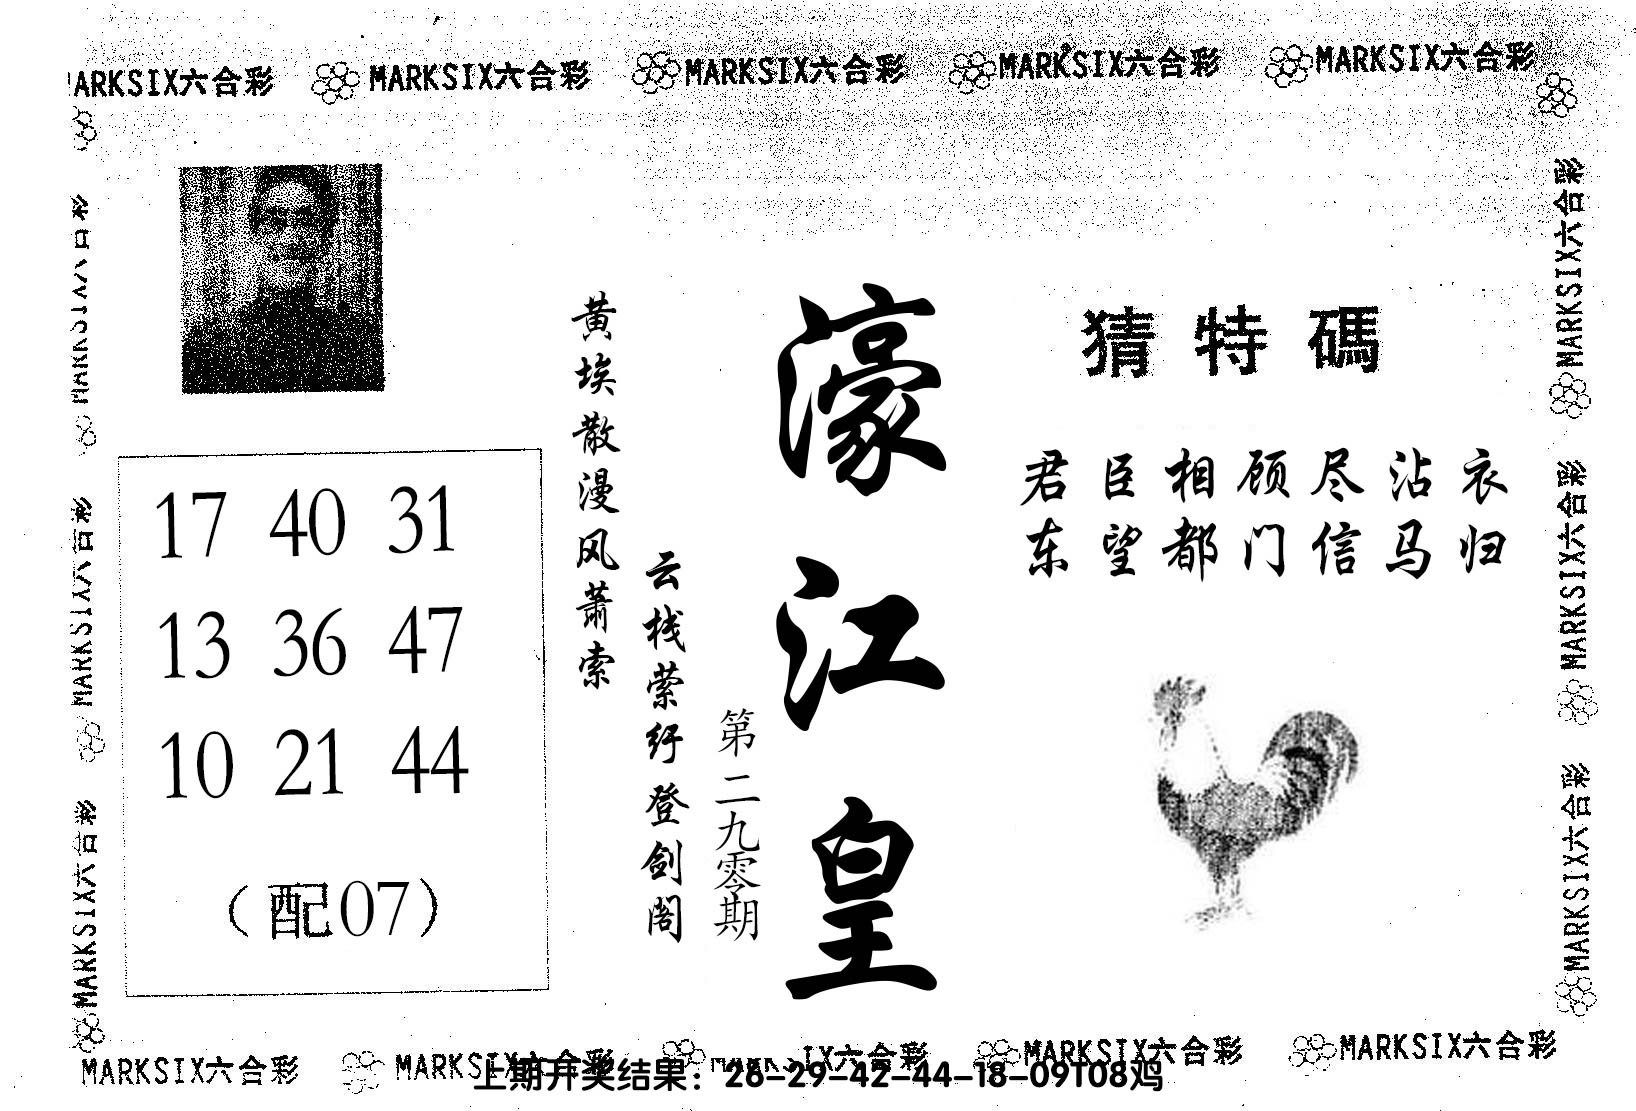 MARKSIX六合彩 MARKSIX六合彩 MARKSIX六合彩 MARKSIX六合彩 MARKSIX六合彩
猜特碼
君臣相顾尽沾衣
东望都门信马归
濠江皇
第二九零期
黄埃散漫风萧索
云栈萦纡登剑阁
17 40 31
13 36 47
10 21 44
（配07）
MARKSIX六合彩
MARKSIX六合彩
MARKSIX六合彩
MARKSIX六合彩
MARKSIX六合彩
MARKSIX六合彩
MARKSIX六合彩 MARKSIX六合彩 MARKSIX六合彩 MARKSIX六合彩 MARKSIX六合彩
上期开奖结果：26-29-42-44-18-09T08鸡